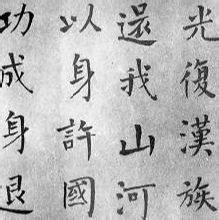 光復漢族
還我山河
以身許國
功成身退